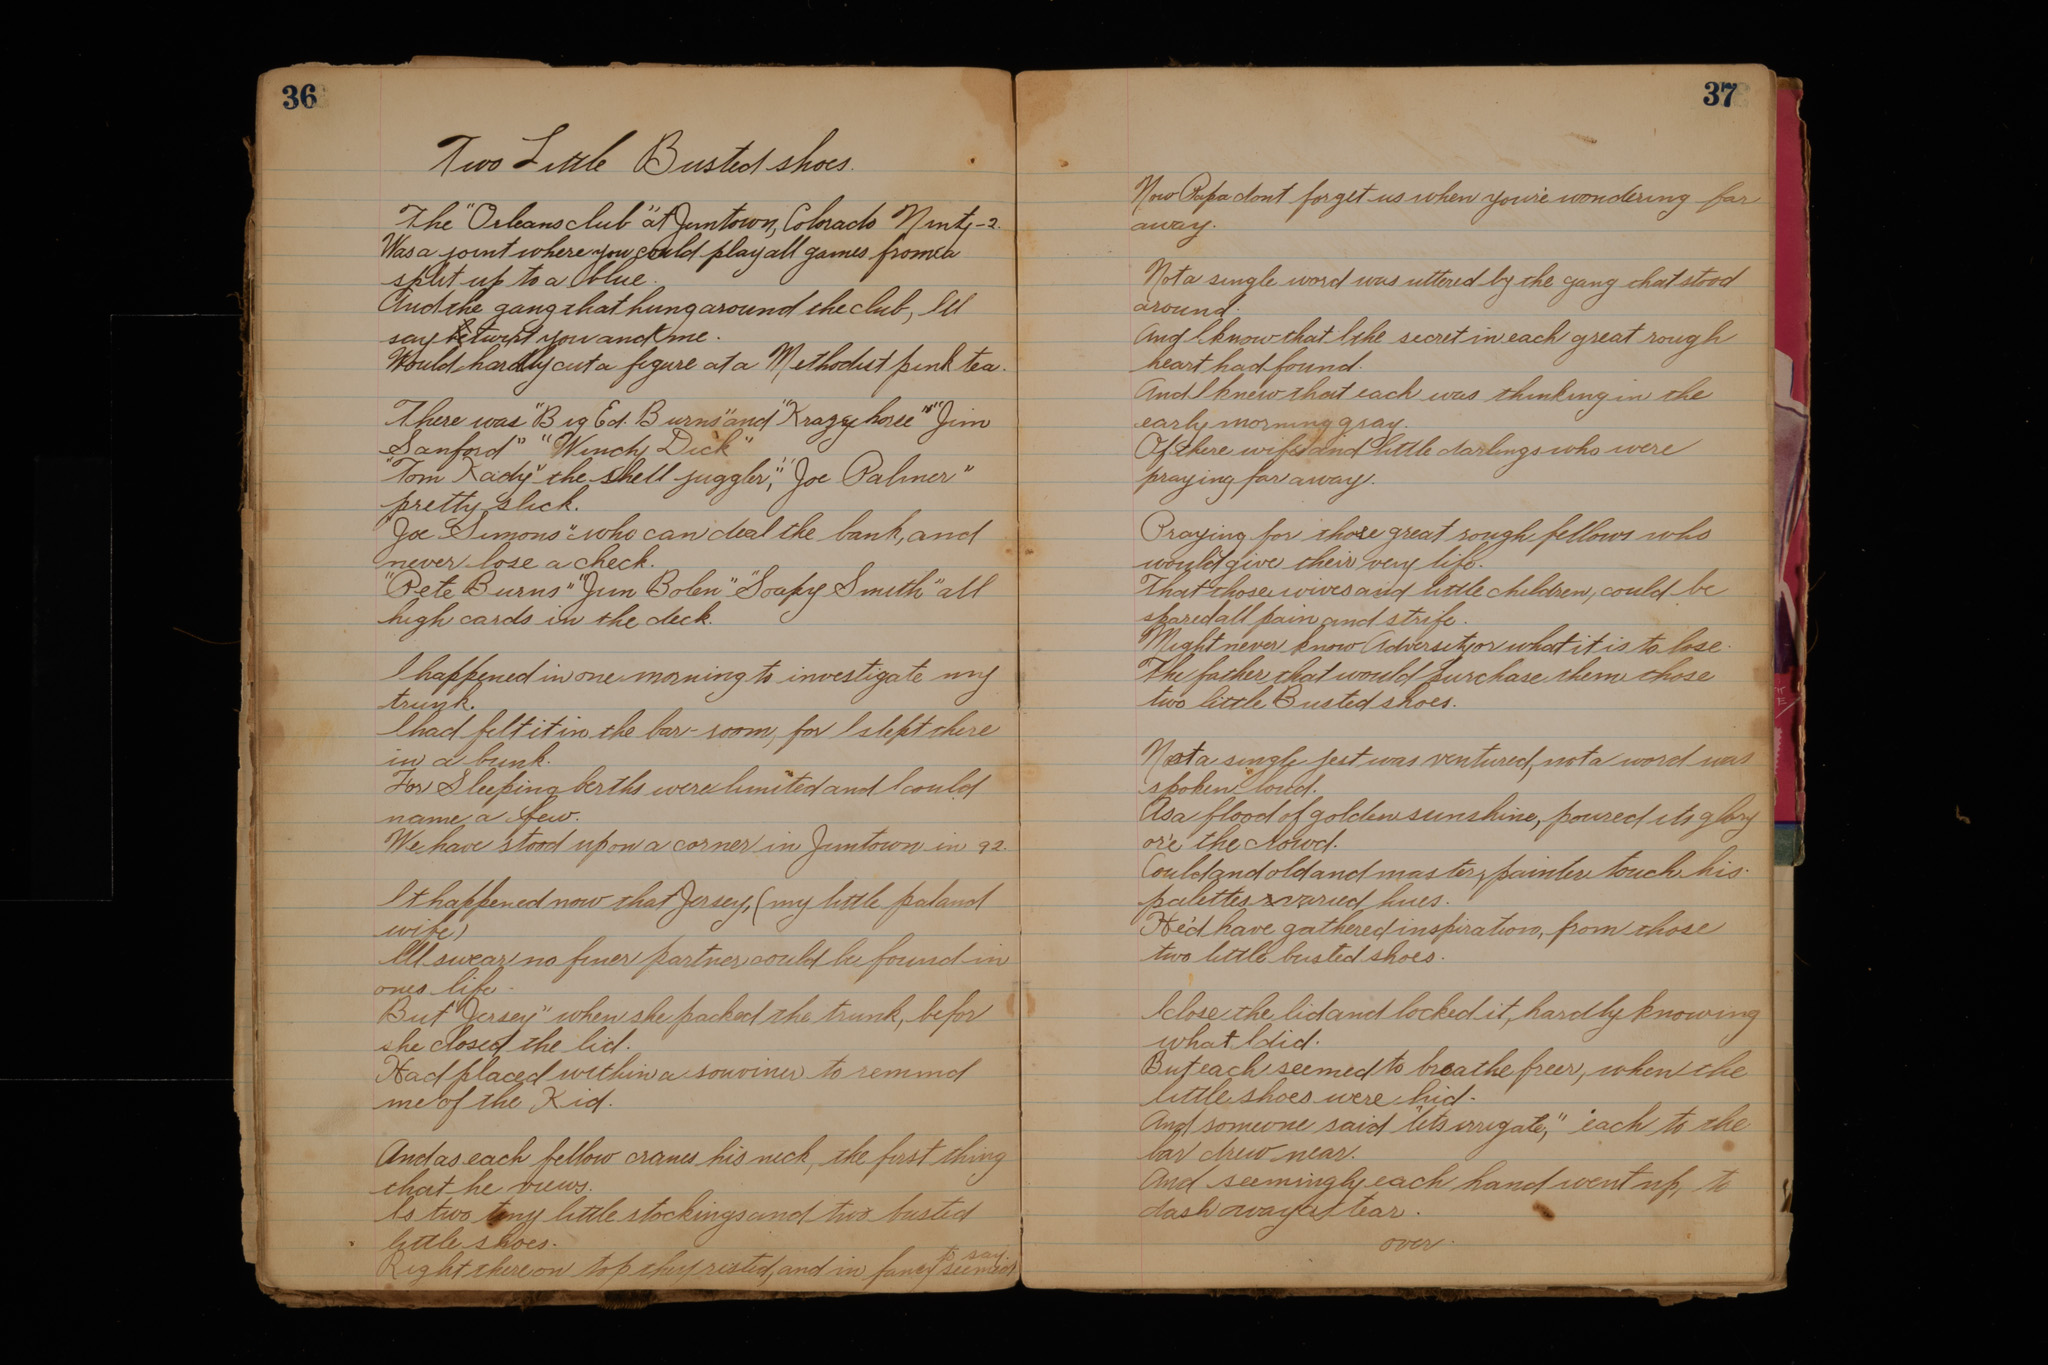 36
Two Little Busted shoes.
The "Orleans club" at Jimtown, Colorado Ninty-2.
Was a joint where you could play all games from a
split up to a blue.
And the gang that hung around the club, I'll
say betwixt you and me.
Would hardly cut a figure at a Methodist pink tea.
There was "Big Ed. Burns" and "Krazy horse" "Jim
Sanford" "Windy Dick"
"Tom Kady" the shell juggler, "Joe Palmer"
pretty slick.
"Joe Simons" who can deal the bank, and
never lose a check.
"Pete Burns" "Jim Bolen" "Soapy Smith" all
high cards in the deck.
I happened in one morning to investigate my
trunk.
I had felt it in the bar-room, for I slept there
in a bunk.
For Sleeping berths were limited and I could
name a few.
We have stood upon a corner in Jimtown in 92.
It happened now that Jersey, (my little pal and
wife)
I'll swear no finer partner could be found in
ones life.
But "Jersey" when she packed the trunk, befor
she closed the lid.
Had placed within a souviner to remind
me of the Kid.
And as each fellow cranes his neck, the first thing
that he views.
Is two tiny little stockings and two busted
little shoes.
Right there on top they rested, and in fancy seemed
to say.
37
Now Papa dont forget us when you're wondering far
away.
Not a single word was uttered by the gang that stood
around.
And I know that I the secret in each great rough
heart had found.
And I knew that each was thinking in the
early morning gray.
Of there wifes and little darlings who were
praying far away.
Praying for those great rough fellows who
would give their very life.
That those wives and little children, could be
spared all pain and strife.
Might never know Adversity or what it is to lose.
The father that would purchase them those
two little Busted shoes.
Not a single jest was ventured, not a word was
spoken loud.
As a flood of golden sunshine, poured its glory
or'e the clowd.
Could and old and master, painter touch his
palettes varied hues.
He'd have gathered inspiration, from those
two little busted shoes.
I close the lid and locked it, hardly knowing
what I did.
But each seemed to breathe freer, when the
little shoes were hid.
And someone said "lets irrigate," each to the
bar drew near.
And seemingly each hand went up, to
dash away a tear.
over.